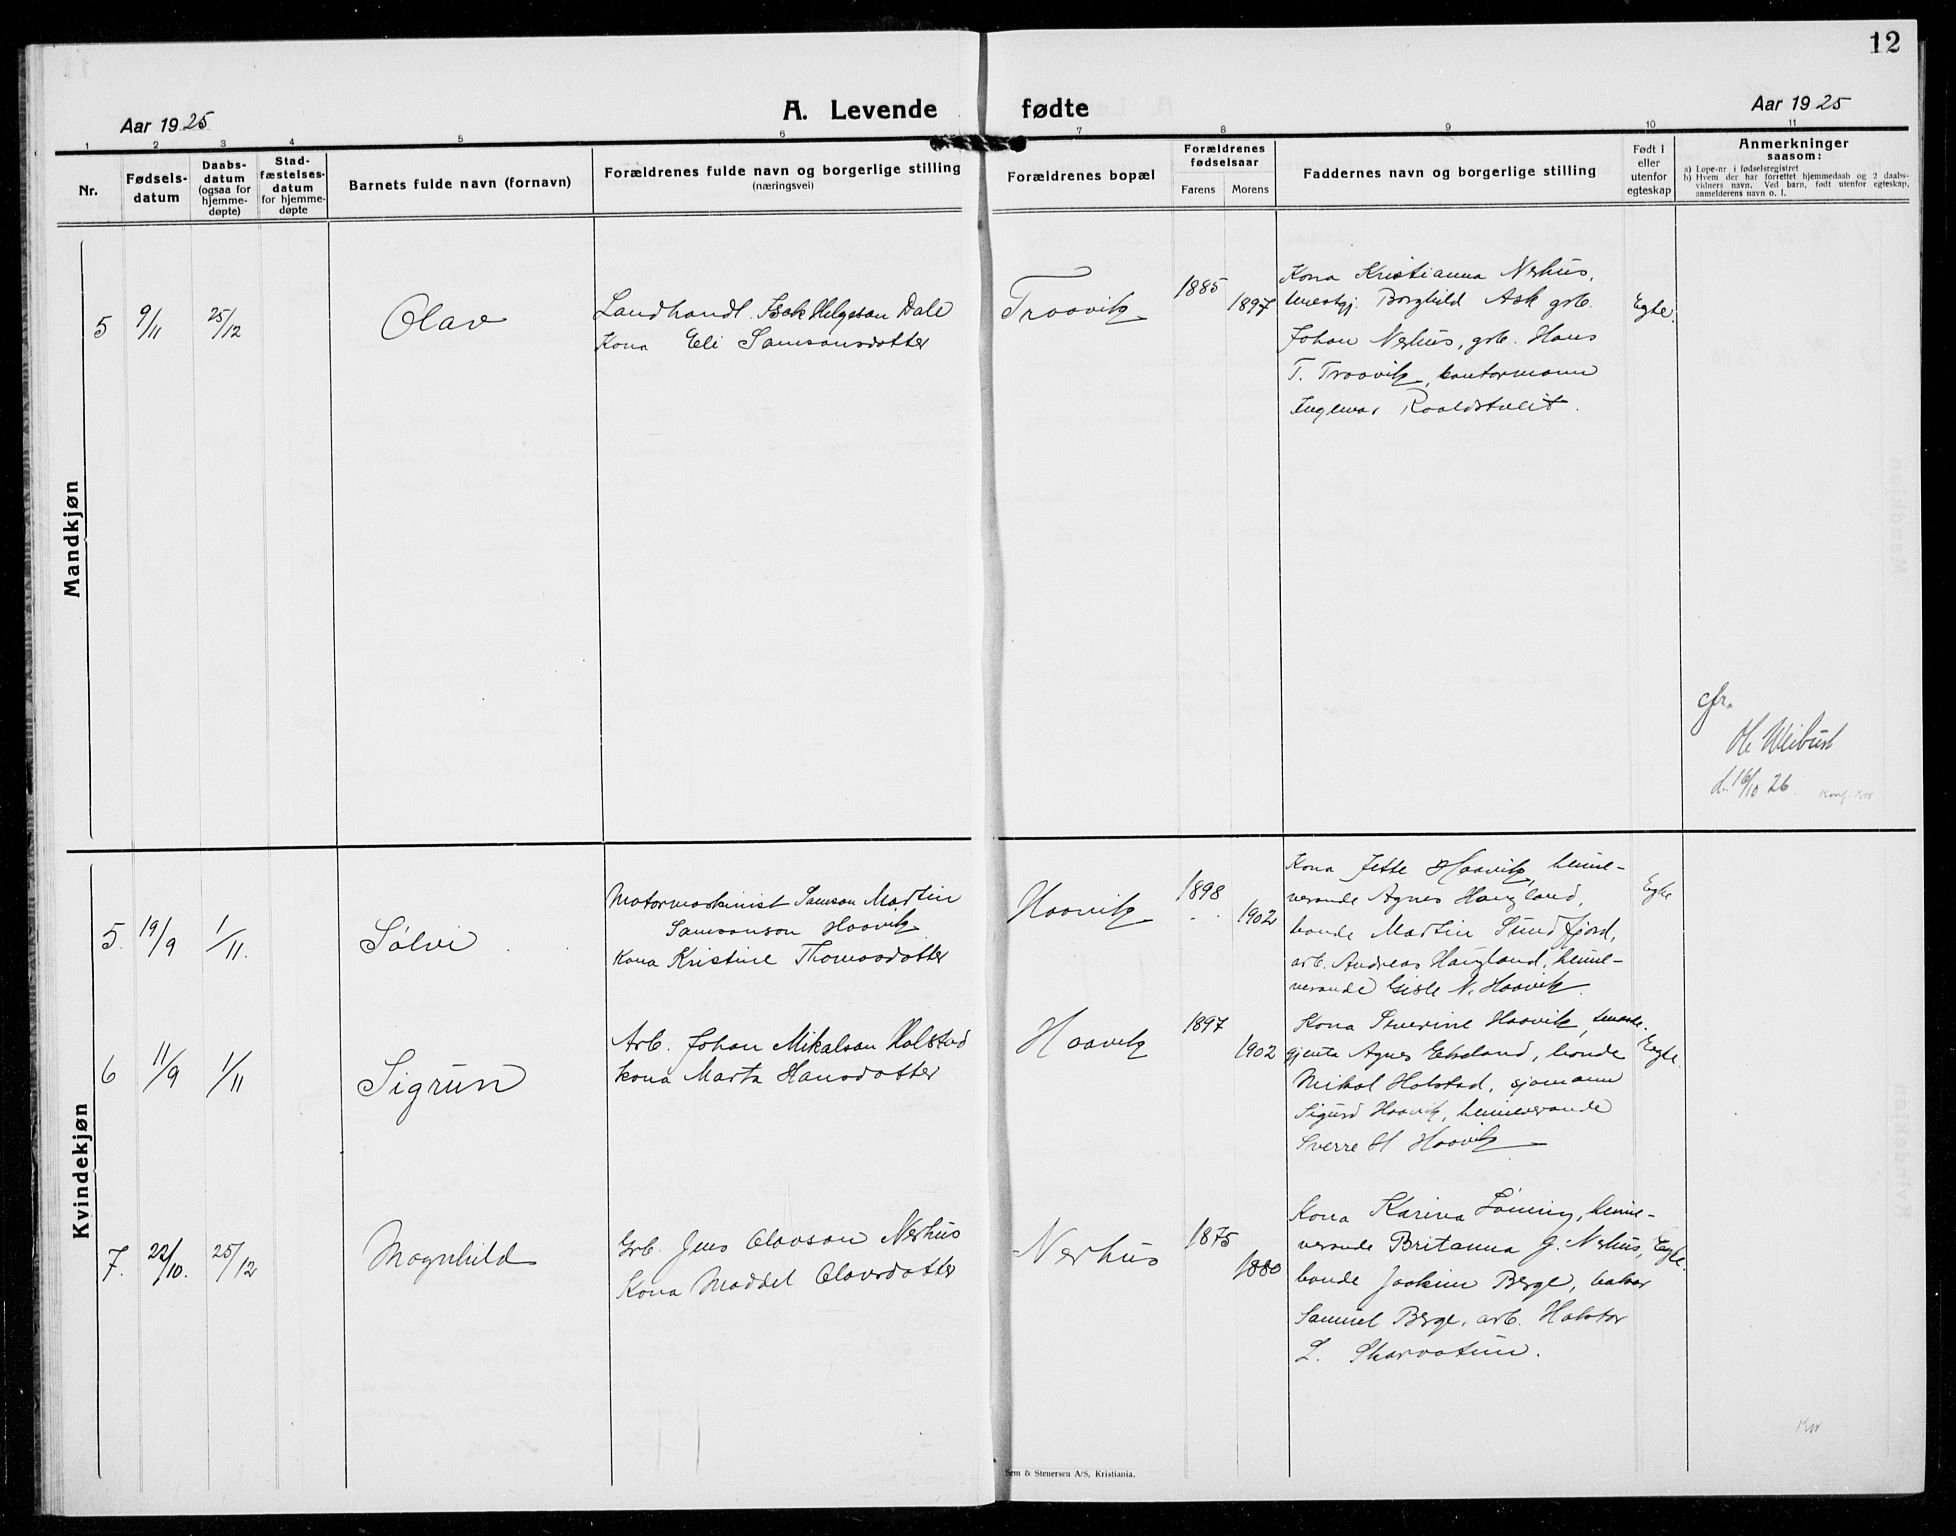 12
Aar 1925
A. Levende fødte
Aar 1925
1 2 3 4 5 6 7 8 9 10 11
Nr.
Fødsels-
datum
Daabs-
datum
(ogsaa for
hjemme-
døpte)
Stad-
fæstelses-
datum
for hjemme-
døpte
Barnets fulde navn (fornavn)
Forældrenes fulde navn og borgerlige stilling
(næringsvei)
Forældrenes bopæl
Forældrenes
fødselsaar
Farens Morens
Faddernes navn og borgerlige stilling
Født i
eller
utenfor
egteskap
Anmerkninger
saasom:
a) Løpe-nr i fødselsregistret
b) Hvem der har forrettet hjemmedaab og 2 daabs-
vidners navn. Ved barn, født utenfor egteskap,
anmelderens navn o. l.
Mandkjøn
5 9/11 25/12 Olav
Landhandl. Isak Helgeson Dale
Kona Eli Samsonsdotter
Traavik 1885 1897
Kona Kristianna Nerhus,
tenestgj. Borghild Ask grb.
Johan Nerhus, grb. Hans
T. Traavik, kontormann
Ingemar Roaldstveit.
Egte.
cfr.
d. 16/10 26. Konf.
Kvindekjøn
5. 19/9 1/11. Sølvi
Motormaskinist Samson Martin
Samsonson Haavik
Kona Kristine Thomasdotter
Haavik 1898 1902
Kona Jette Haavik, heime-
verande Agnes Haugland,
bonde Martin Sundfjord,
arb. Andreas Haugland, heime-
verande Gisle N. Haavik.
Egte
6 11/9 1/11 Sigrun
Arb. Johan Mikalson Holstad
kona Marta Hansdotter
Haavik 1897 1902
Kona Severine Haavik, teneste-
gjenta Agnes Ekeland, bonde
Mikal Holstad, sjømann
Sigurd Haavik, heimeverande
Sverre H Haavik
Egte
7. 22/10. 25/12 Magnhild
Grb. Jens Olavson Nerhus
Kona Maddel Olavsdotter
Nerhus 1875 1880
Kona Karina Løning, heime-
verande Britanna J. Nerhus,
bonde Joakim Berge, bakar
Samuel Berge, arb. Halstor
L. Skarvatun.
Egte.
Sem & Stenersen A/S, Kristiania.